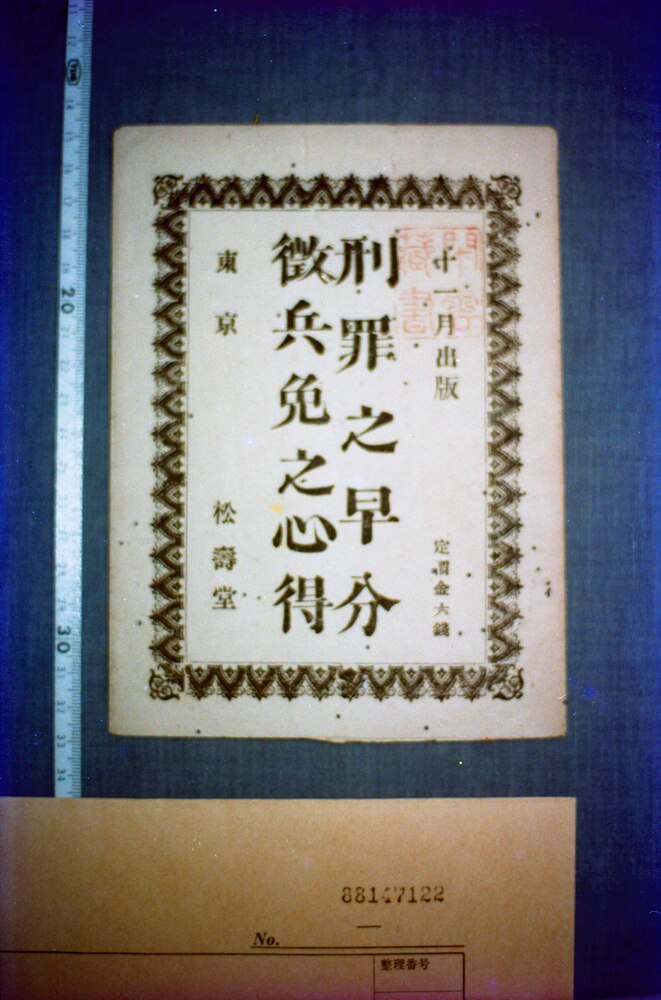 十一月出版
定價金六錢
刑罪之早分
徴兵免之心得
東京
松壽堂
20
30
31
32
33
34
88147122
No.
整理番号